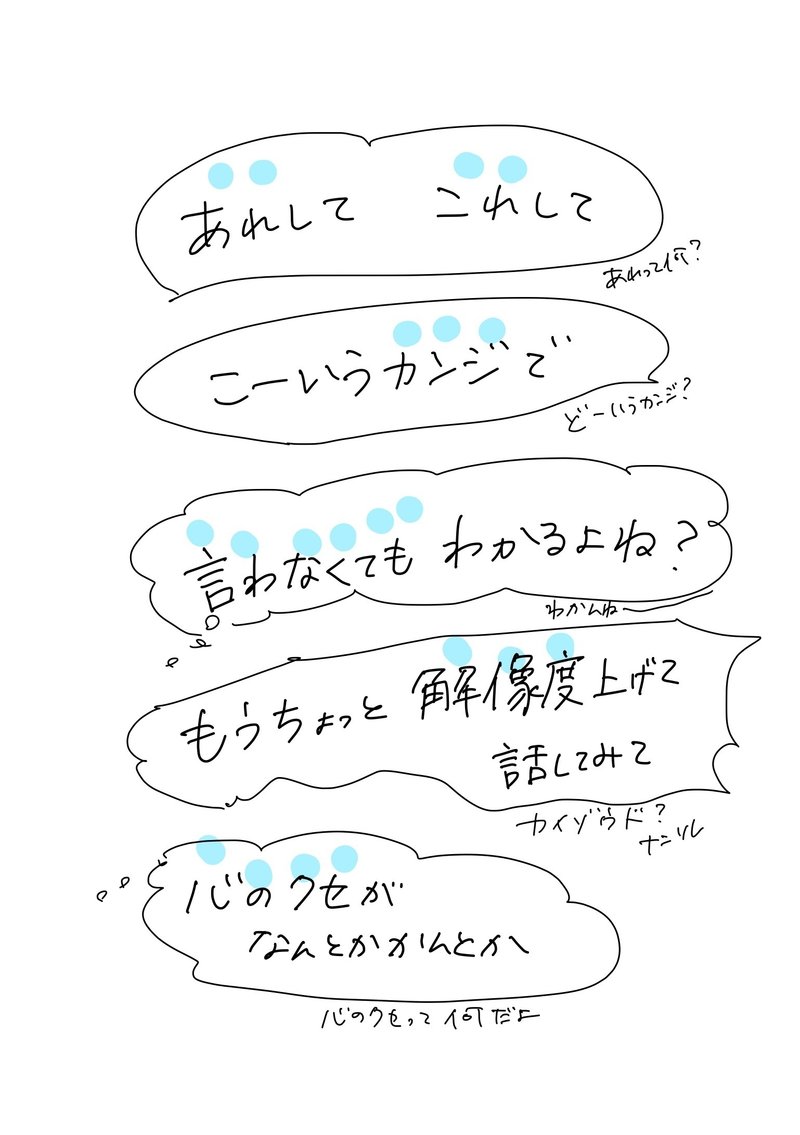 あれして これして
あれって何?
こーいうカンジで
どーいうカンジ?
言わなくても わかるよね?
わかんね
もうちょっと 解像度上げて
話してみて
カイゾウド?
ナニソレ
心のクセが
なんとかかんとか
心のクセって何だよ